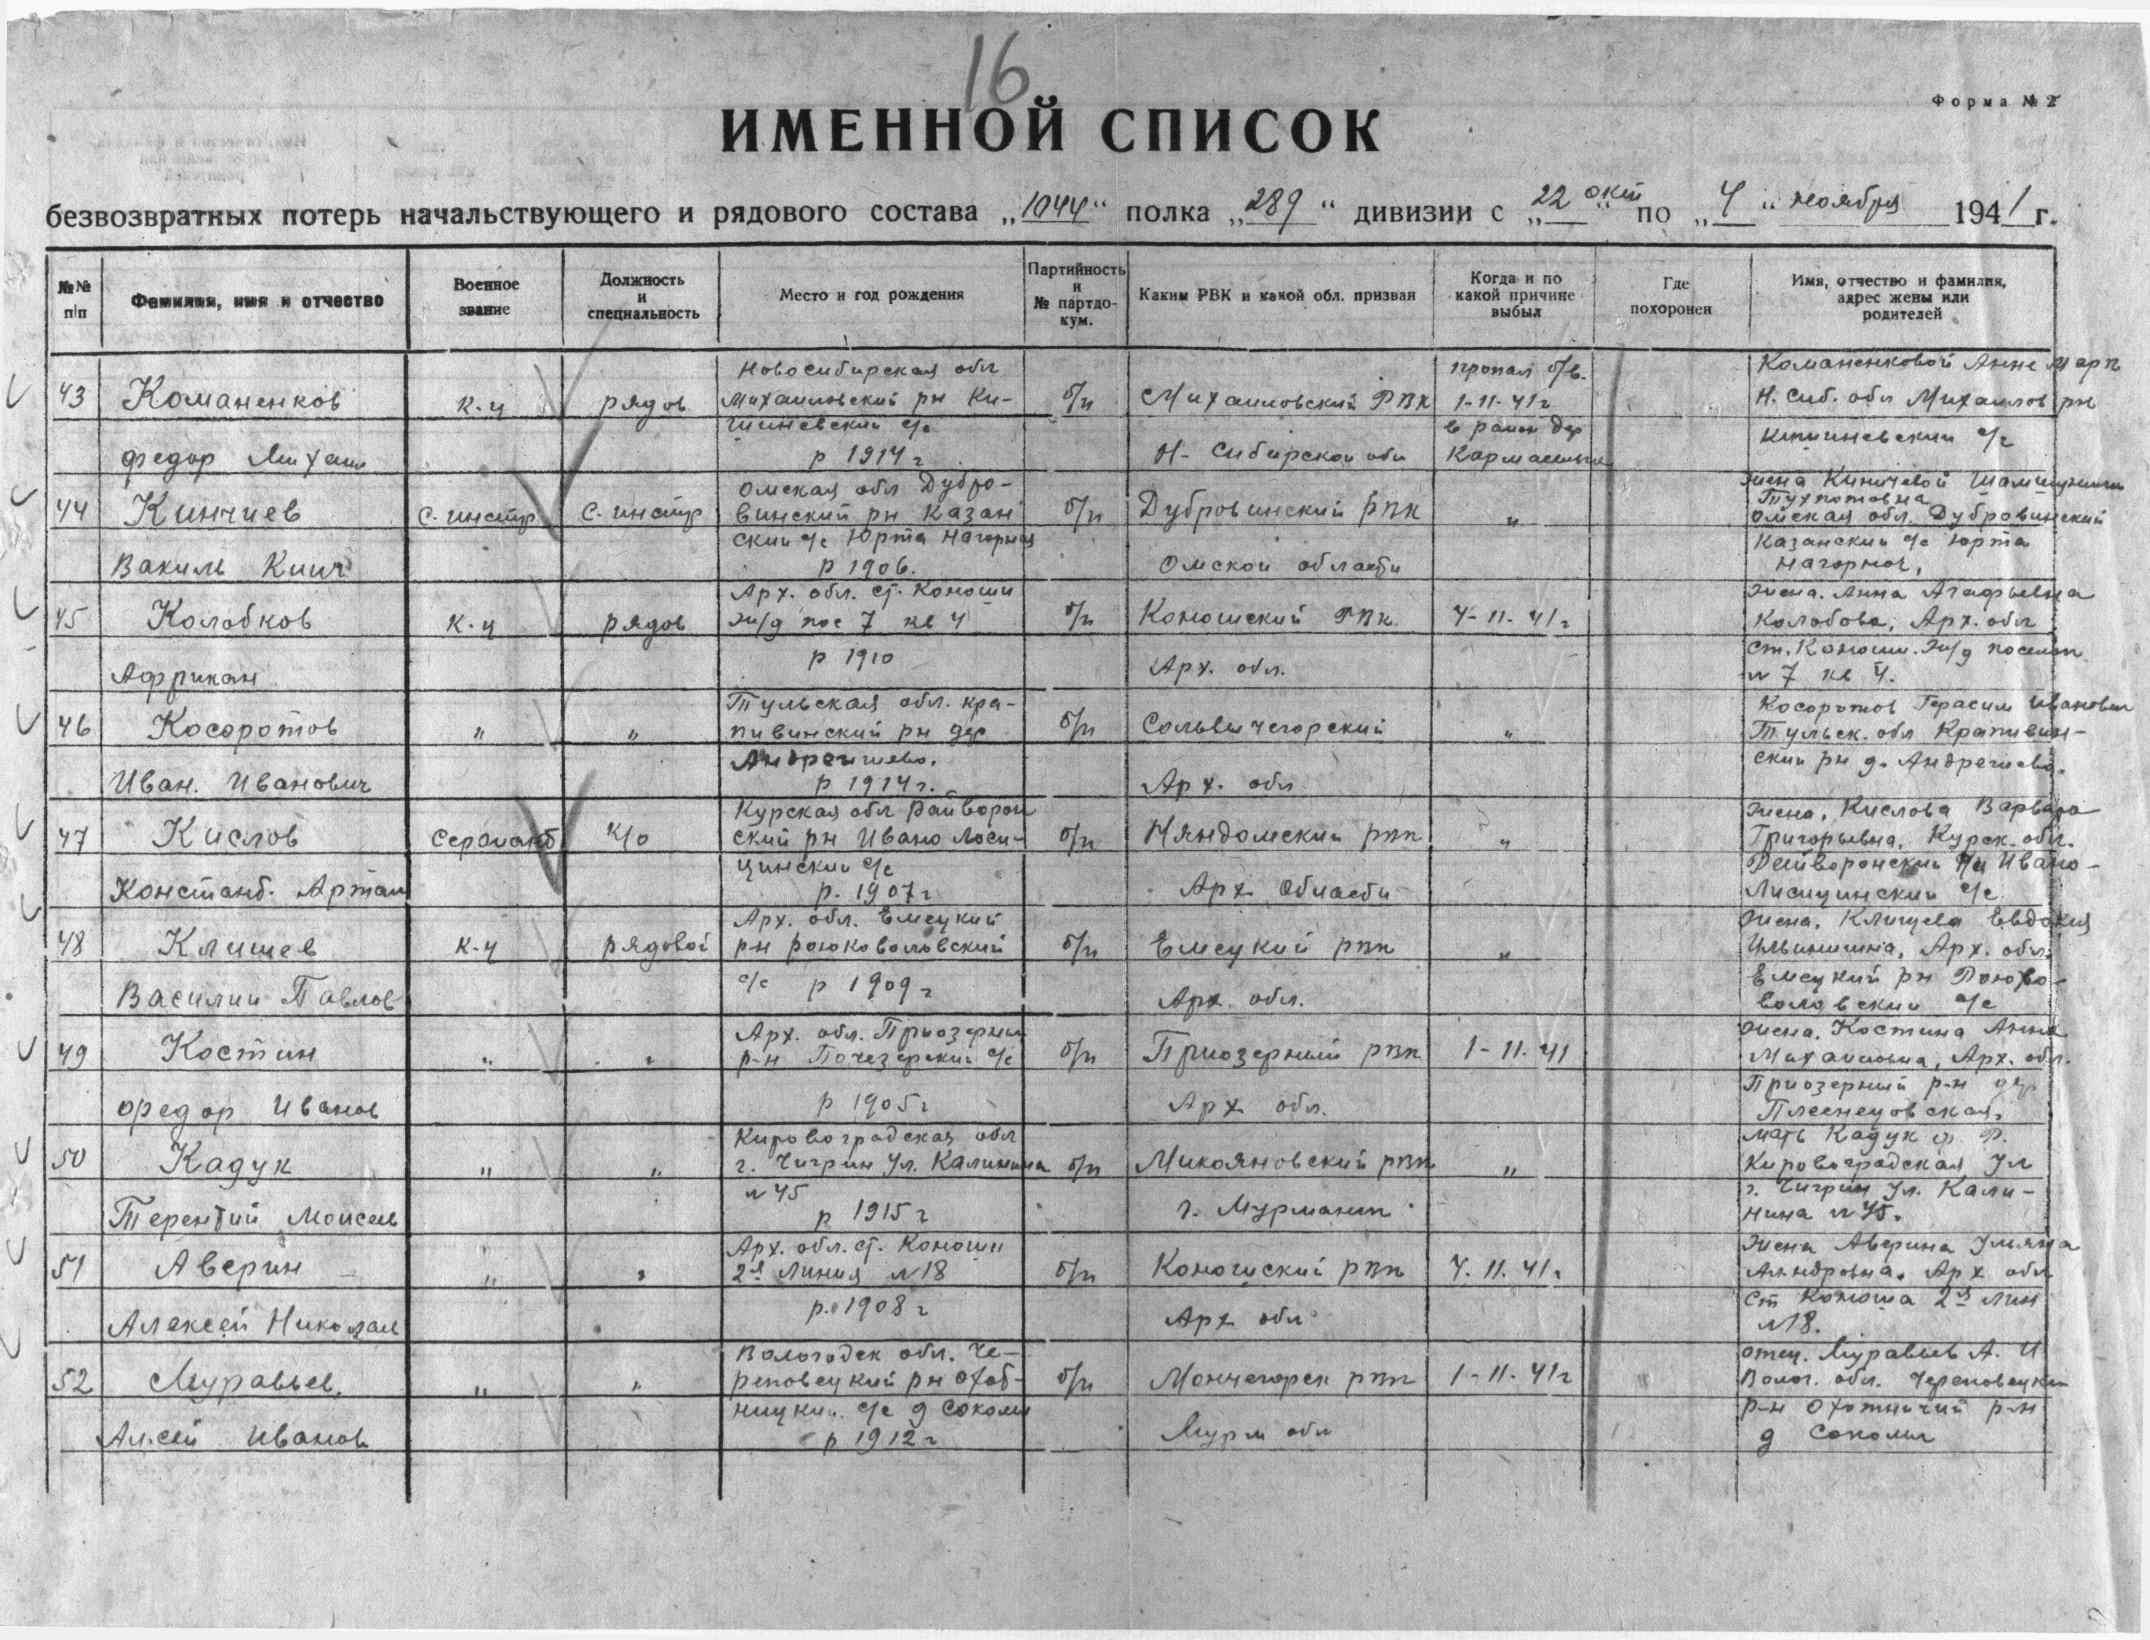 16
Форма № 2
ИМЕННОЙ СПИСОК
безвозвратных потерь начальствующего и рядового состава „1044“ полка „289“ дивизии с „22 окт“ по „4“ ноября 1941 г.
№№ п/п
Фамилия, имя и отчество
Военное звание
Должность и специальность
Место и год рождения
Партийность и № партдокум.
Каким РВК и какой обл. призван
Когда и по какой причине выбыл
Где похоронен
Имя, отчество и фамилия, адрес жены или родителей
43 Команенков к-ц рядов Новосибирская обл Михайловский рн Ки- б/п Михайловский РВК пропал б/в. 1-11-41г Команенковой Анне Марк Н. Сиб. обл Михайлов рн
Федор Михаил шиневский с/с р 1914 г Н- Сибирской обл в район дер Кишиневский с/с
44 Кинчиев с. инстр с. инстр Омская обл Дубро- винский рн Казан б/п Дубровинский РВК „ жена Кинчевой Омская обл. Дубровинский
Вакиль Кинч ский с/с Юрта Нагорная р 1906. Омской области Казанский с/с Юрта Нагорной,
45 Колобков к-ц рядов Арх. обл. ст. Коноши ж/д пос 7 кв 4 б/п Коношский РВК 4-11-41г жена. Анна Агафьевна Колобова, Арх. обл
Африкан р 1910 Арх. обл. ст. Коноши. ж/д поселок №7 кв 4.
46 Косоротов „ „ Тульская обл. Кра- пивинский рн дер б/п Сольвычегорский „ Косоротов Герасим Иванович Тульск. обл Крапивин-
Иван. Иванович Андреишево. р 1914г. Арх. обл ский рн д.
47 Кислов Сержант к/о Курская обл Райворон ский рн Ивано Лоси- б/п Няндомский рвк „ жена, Кислова Варвара Григорьевна, Курск. обл.
Констант. Артам цинский с/с р. 1907г Арх Области рн Ивано- Лисицинский с/с
48 Клишев к-ц рядовой Арх. обл. Емецкий рн б/п Емецкий рвк „ жена, Клишева Евдокия Ильинишна, Арх. обл.
Василий Павлов с/с р 1909 г Арх. обл. Емецкий рн с/с
49 Костин „ „ Арх. обл. Приозерный р-н Почезерский с/с б/п Приозерный рвк 1-11-41 жена. Костина Анна Михайловна, Арх. обл.
Федор Иванов р 1905г Арх обл. Приозерный р-н дер
50 Кадук „ „ Кировоградская обл г. Чигрин ул. Калинина б/п Микояновский рвк „ мать Кадук Ф. Ф. Кировоградская ул
Терентий Моисее №45 р 1915 г г. Мурманск г. Чигрин ул. Кали- нина №45.
51 Аверин „ „ Арх. обл. ст. Коноши 2я Линия №18 б/п Коношский рвк 4. 11. 41г жена Аверина Ульяна Арх обл
Алексей Николае р. 1908 г Арх обл ст Коноша 2я лин №18.
52 Муравьев, „ „ Вологодск обл. Че- реповецкий рн Охот- б/п Мончегорск рвк 1-11-41г отец. Муравьев А. И Волог. обл. Череповецкий
Ал.сей Иванов ницкий. с/с д Соколы р 1912 г Мурм обл р-н Охотничий р-н д Соколы